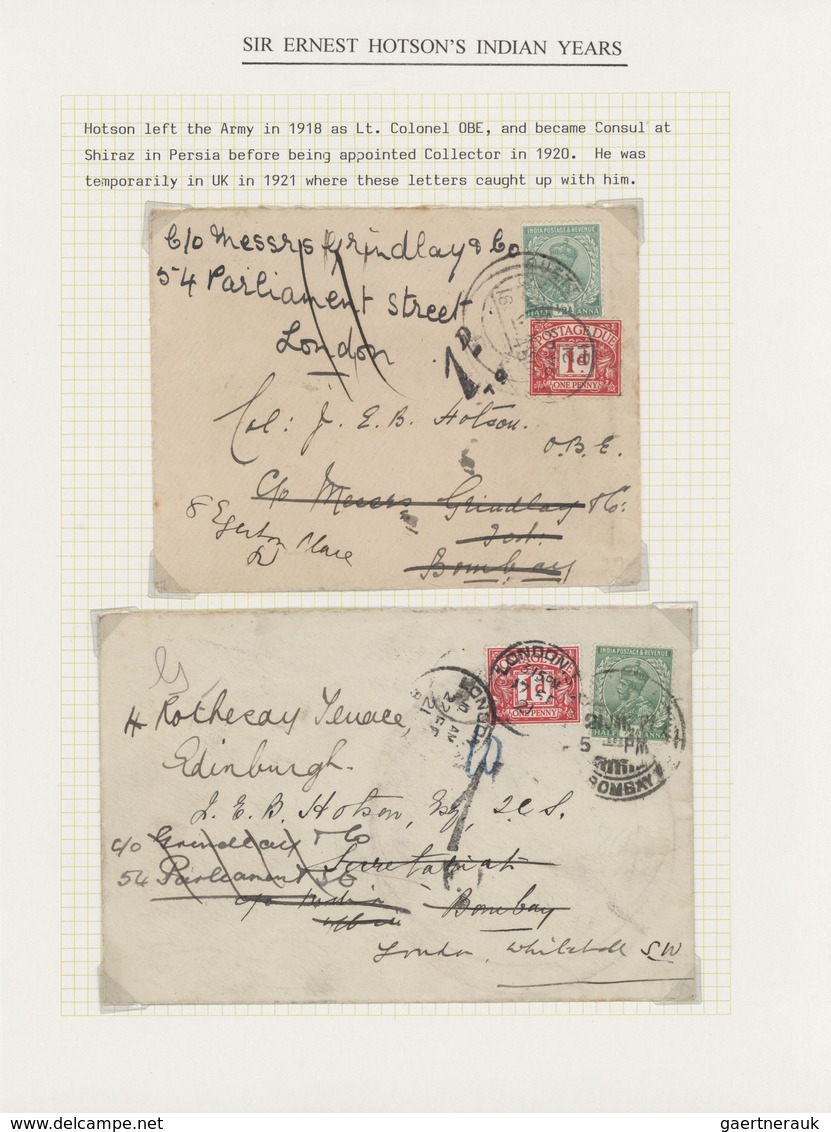 SIR ERNEST HOTSON'S INDIAN YEARS
Hotson left the Army in 1918 as Lt. Colonel OBE, and became Consul at
Shiraz in Persia before being appointed Collector in 1920. He was
temporarily in UK in 1921 where these letters caught up with him.
C/o Messrs Grindlay & Co
54 Parliament Street
London
INDIA POSTAGE & REVENUE
HALF ANNA
POSTAGE DUE
1d
ONE PENNY
Col: J. E. B. Hotson.
O.B.E.
C/o Messrs Grindlay & Co:
Bombay
8 Egerton Place
LONDON
1d
ONE PENNY
INDIA POSTAGE & REVENUE
HALF ANNA
LONDON
AM
22 SP
21
5 PM
BOMBAY
4 Rothesay Terrace,
Edinburgh.
J. E. B. Hotson, Esq, I.C.S.
c/o Grindlay & Co
Secretariat
54 Parliament St
c/o India
Office
Bombay
London, Whitehall S.W
delcampe.net
gaertnerauk